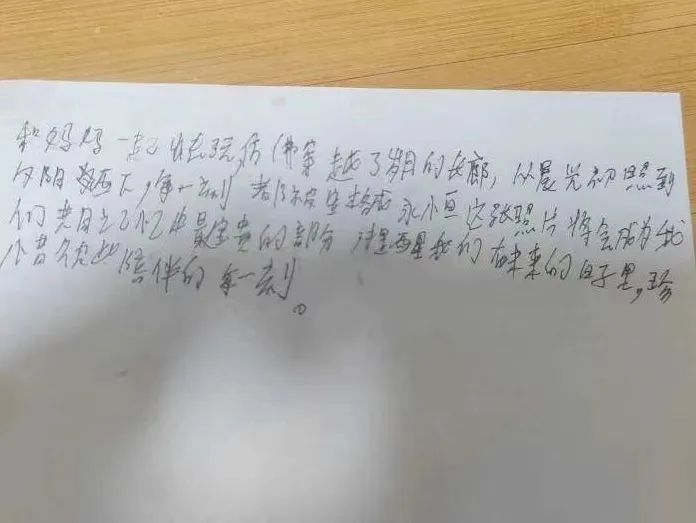 和妈妈一起佉玩,仿佛穿越了岁月的长廊,从晨光初照到
夕阳西下,每一刻都 永恒这张照片将会成为我
们共同 忆中最宝贵的部分 醒我们在未来的日子里,珍
惜 陪伴的每一刻。